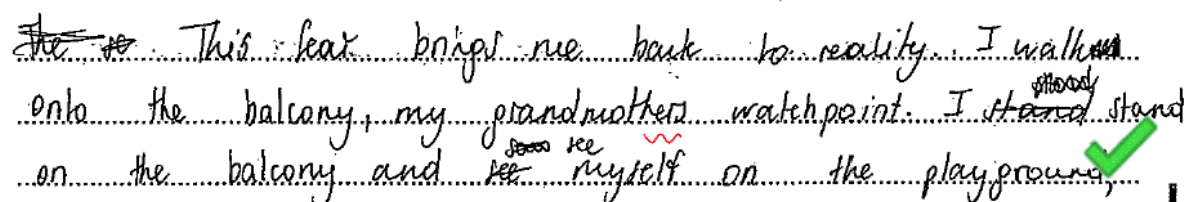 This fear brings me back to reality. I walk
onto the balcony, my grandmothers watchpoint. I stand
on the balcony and see myself on the playground,